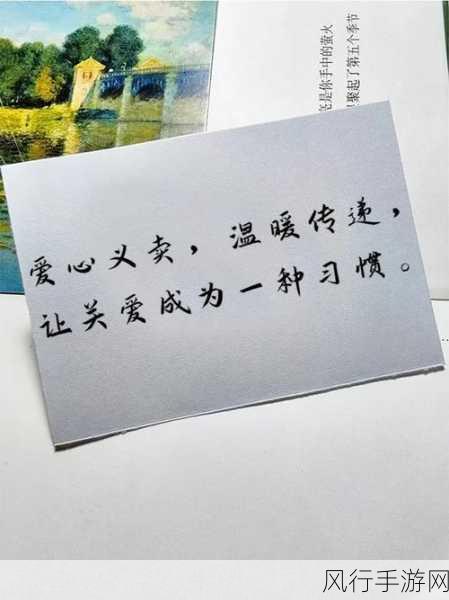 是你手中的萤火
聚起了第五个季节
爱心义卖，温暖传递，
让关爱成为一种习惯。
风行手游网